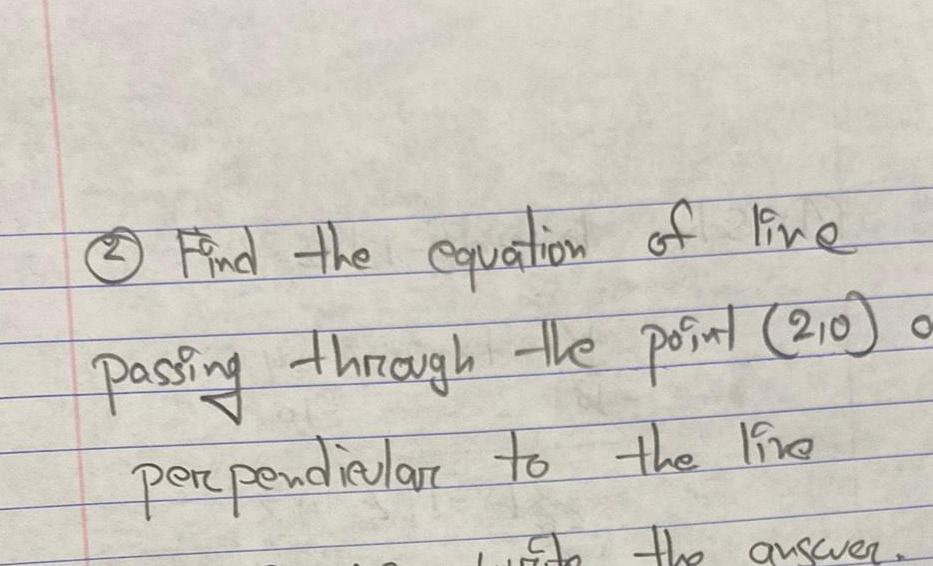 ② Find the equation of line
passing through the point (2,0)
perpendicular to the line
the answer.